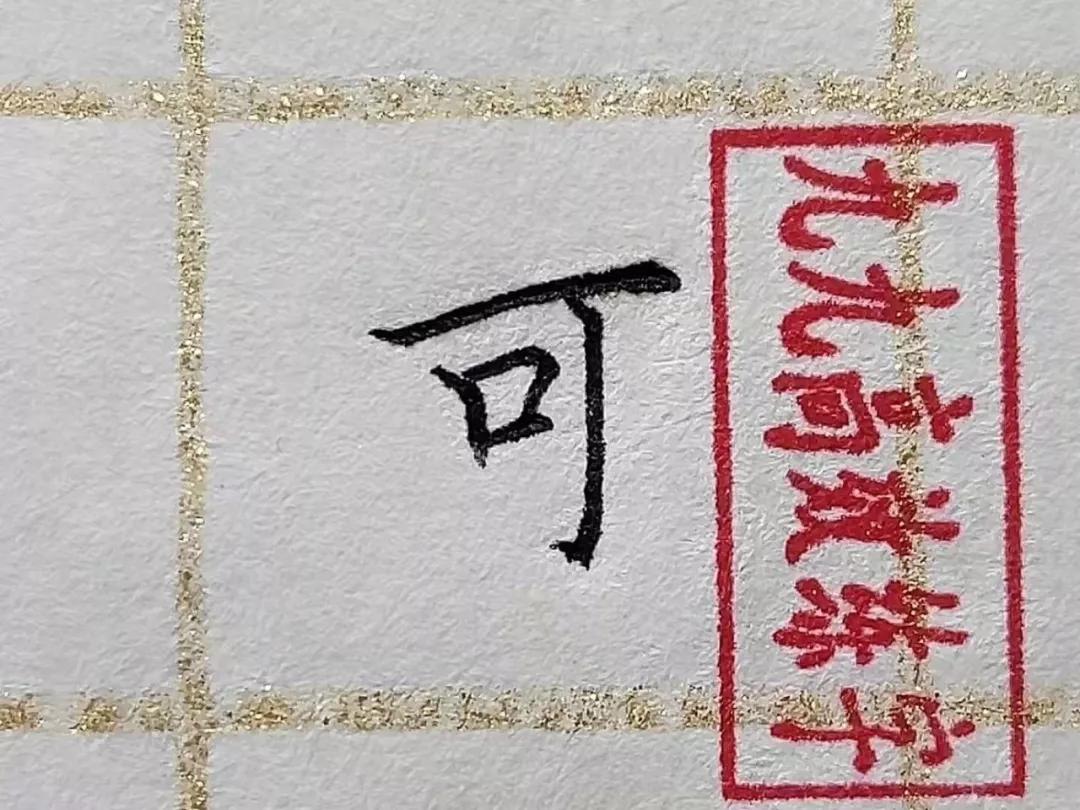 可
九九高效练字